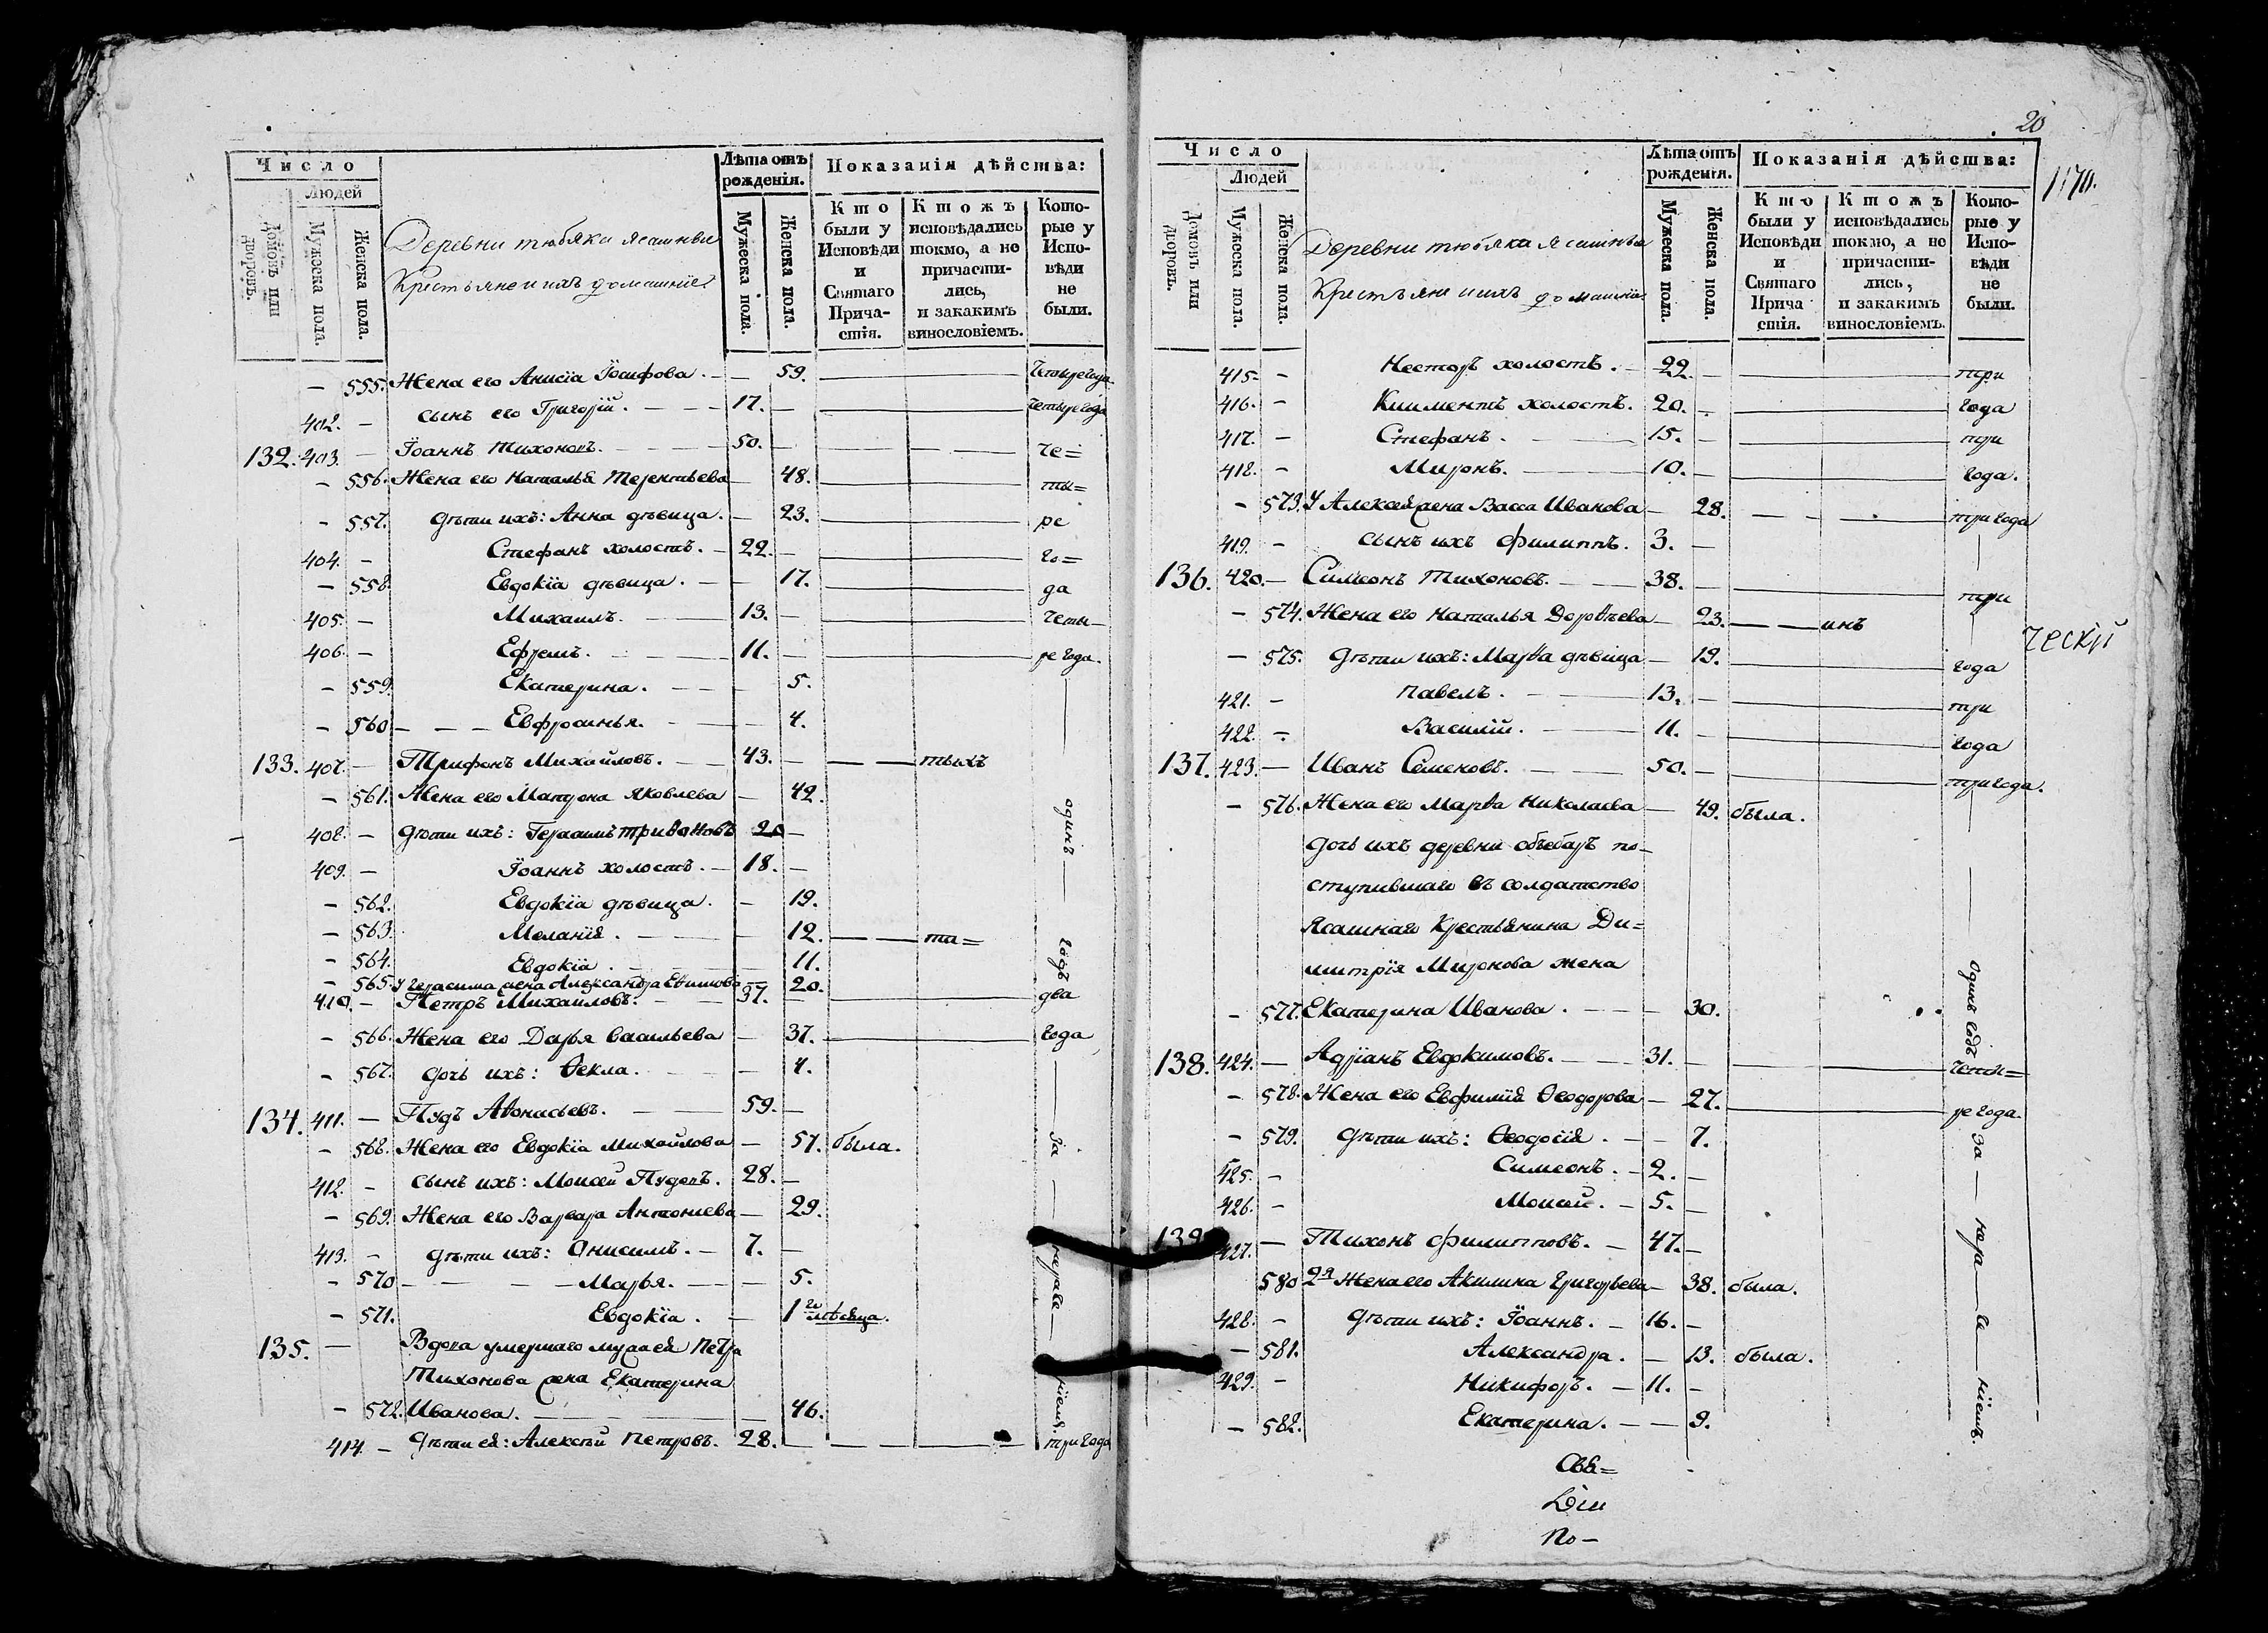 Число
Людей
Домовъ или дворовъ.
Мужеска пола.
Женска пола.
Деревни тюбяки ясашныи
Крестьяне и ихъ домашніе
Лѣта отъ рожденія.
Мужеска пола.
Женска пола.
Показанія дѣйства:
Кто были у Исповѣди и Святаго Причастія.
Ктожъ исповѣдались токмо, а не причастились, и закакимъ винословіемъ.
Которые у Исповѣди не были.
— 555. Жена его Анисіа Іосифова. — 59. четыре года
402. — сынъ его Григорій. — 17. — четыре года
132. 403. — Іоаннъ Тихоновъ. — 50. — че=
— 556. Жена его Наталья Терентьева — 48. ты=
— 557. Дѣти ихъ: Анна дѣвица. — 23. ре
404. — Стефанъ холостъ. — 22. — го=
— 558 Евдокіа дѣвица. — 17. да
405. — Михаилъ. — 13. — четы—
406. — Ефремъ. — 11. — ре года.
— 559. Екатерина. — 5.
— 560 — Евфросинья. — 4.
133. 407. — Трифонъ Михайловъ. — 43. — — тыхъ
— 561. Жена его Матрона Яковлева — 42.
408. — Дѣти ихъ: Герасимъ триѳоновъ 20 —
409. — Іоаннъ холостъ. — 18. —
— 562. Евдокіа дѣвица. — 19.
— 563. Меланія. — 12. — — та=
— 564. Евдокіа. — 11.
— 565. У Герасима жена Александра Евѳимова 20.
410. — Петръ Михаиловъ. — 37. — два
— 566. Жена его Дарья васильева — 37. года
— 567. Дочь ихъ: Ѳекла. — 4.
134. 411. — Пудъ Аѳонасьевъ. — 59. —
— 568. Жена его Евдокіа Михайлова — 57. была.
412. — Сынъ ихъ: Моисей Пудовъ. 28. —
— 569. Жена его Варвара Антониева — 29.
413. — Дѣти ихъ: Онисимъ. — 7. —
— 570 — Марья. — 5.
— 571. Евдокіа. — 1го мѣсяца.
135. — Вдова умершаго Петра
Тихонова жена Екатерина
— 572. Иванова. — 46.
414. — Дѣти ея: Алексѣй Петровъ. 28. — три года
одинъ годъ за нераденіемъ
20
Число
Людей
Домовъ или дворовъ.
Мужеска пола.
Женска пола.
Деревни тюбяка Ясашныи
Крестьяне и ихъ домашніе
Лѣта отъ рожденія.
Мужеска пола.
Женска пола.
Показанія дѣйства:
Кто были у Исповѣди и Святаго Прича стія.
Ктожъ исповѣдались токмо, а не причастились, и закакимъ винословіемъ.
Которые у Исповѣди не были.
1170.
415. — Несторъ холостъ. — 22. — три
416. — Климентъ холостъ. 20. — года
417. — Стефанъ. — 15. — три
418. — Миронъ. — 10. — года.
— 573. У Алексѣя жена Васса Иванова — 28. три года
419. — сынъ ихъ Филиппъ. 3. —
136. 420. — Симеонъ Тихоновъ. — 38. — три
— 574. Жена его Наталья Дороѳѣева — 23. — — инъ
ческій
— 575. Дѣти ихъ: Марѳа дѣвица — 19. года
421. — Павелъ. — 13. — три
422. — Василій. — 11. — года
137. 423. — Иванъ Семеновъ. — 50. — три года.
— 576. Жена его Марѳа Николаева — 49. была.
Дочь ихъ деревни объебаръ по—
ступившаго въ солдатство
Ясашнаго Крестьянина Ди=
митрія Миронова жена
— 577. Екатерина Иванова. — 30.
138. 424. — Адріанъ Евдокимовъ. — 31. — четы=
— 578. Жена его Евфимія Ѳеодорова — 27. ре года.
— 579. Дѣти ихъ: Ѳеодосія. — 7.
425. — Симеонъ. — 2. —
426. — Моисей. — 5. —
139. 427. — Тихонъ Филипповъ. — 47. —
580 2я Жена его Акилина Григорьева — 38. была.
428. — Дѣти ихъ: Іоаннъ. — 16. —
— 581. Александра. — 13. была.
429. — Никифоръ. — 11. —
— 582. Екатерина. — 9.
Одинъ годъ за нераденіемъ.
По—